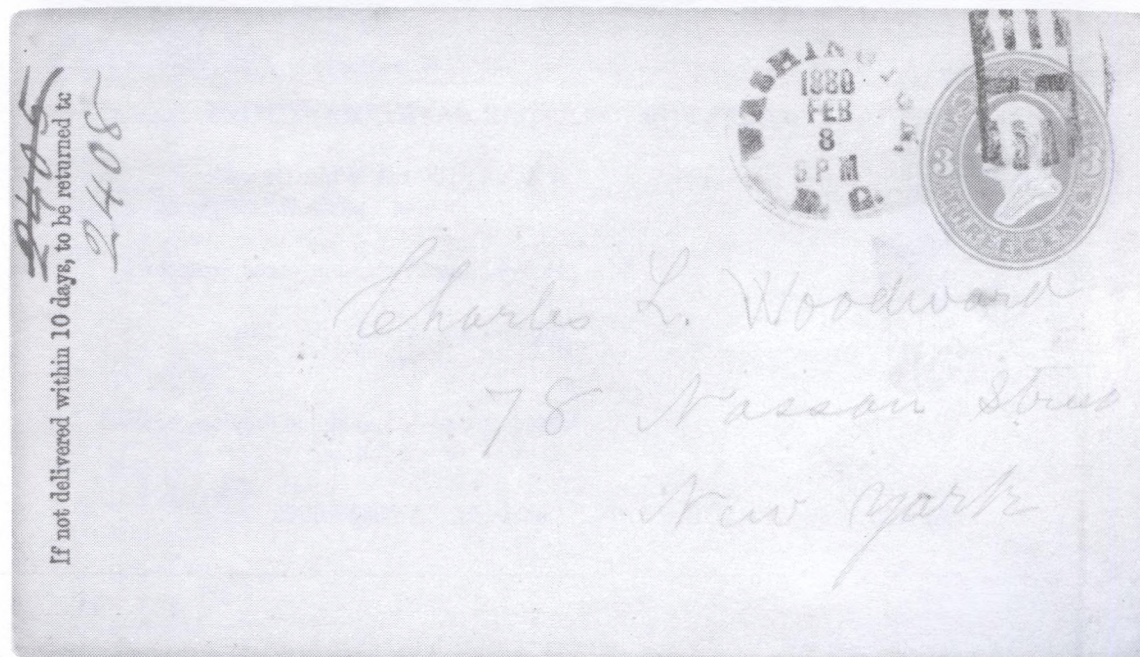 2405
If not delivered within 10 days, to be returned to
2408
WASHINGTON,
1880
FEB
8
6 PM
D. C.
U.S. POSTAGE
3 3
THREE CENTS
Charles L. Woodward
78 Nassau Street
New York